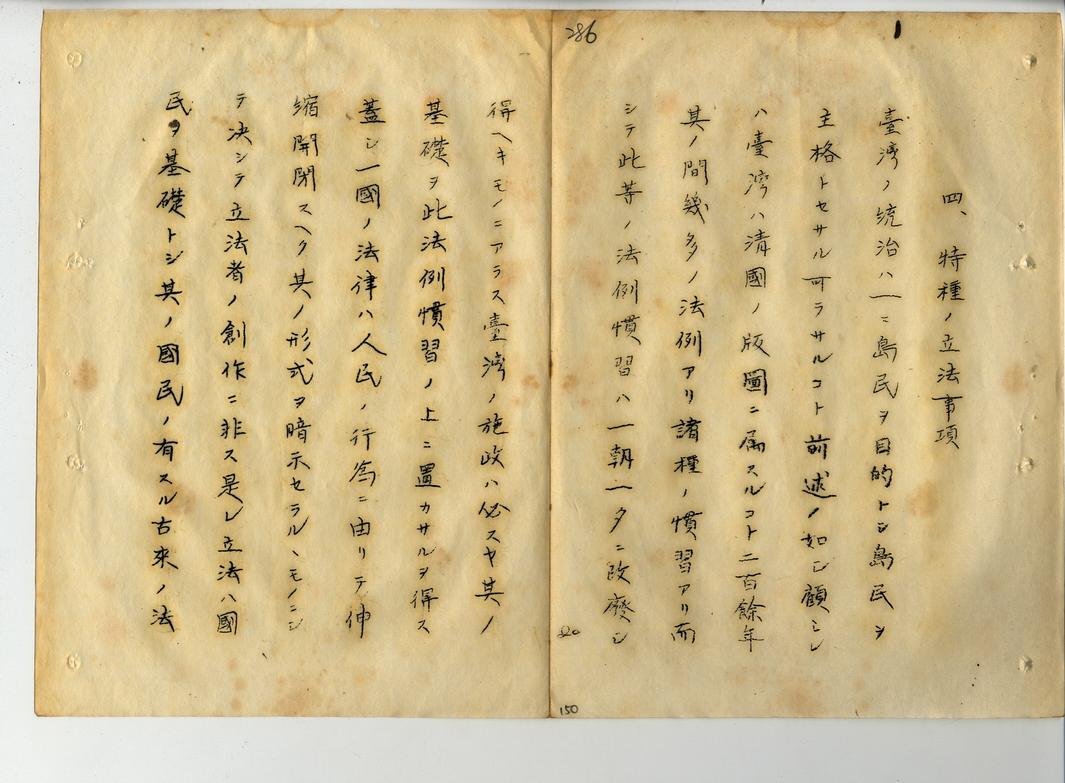 286
1
四、特種ノ立法事項
臺灣ノ統治ハ一ニ島民ヲ目的トシ島民ヲ
主格トセサル可ラサルコト前述ノ如シ顧ミレ
ハ臺灣ハ清國ノ版圖ニ属スルコト二百餘年
其ノ間幾多ノ法例アリ諸種ノ慣習アリ而
シテ此等ノ法例慣習ハ一朝一夕ニ改廢シ
20
150
得ヘキモノニアラス臺灣ノ施政ハ必スヤ其ノ
基礎ヲ此法例慣習ノ上ニ置カサルヲ得ス
蓋シ一國ノ法律ハ人民ノ行為ニ由リテ伸
縮開閉スヘク其ノ形式ヲ暗示セラルヽモノニシ
テ决シテ立法者ノ創作ニ非ス是レ立法ハ國
民ヲ基礎トシ其ノ國民ノ有スル古來ノ法